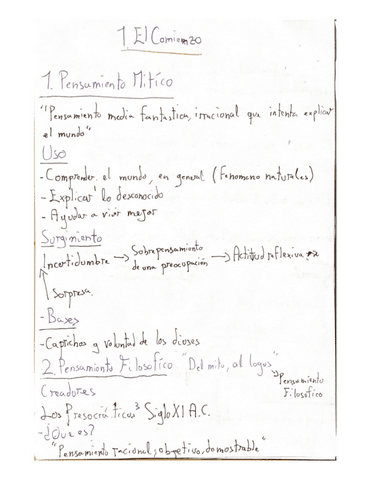 1. El Comienzo
1. Pensamiento Mítico
"Pensamiento media fantastica, irracional que intenta explicar
el mundo"
Uso
- Comprender el mundo, en general (Fenomeno naturales)
- Explicar lo desconocido
- Ayudar a vivir mejor
Surgimiento
Incertidumbre → Sobrepensamiento de una preocupación → Actitud reflexiva
Sorpresa.
- Bases
- Caprichos y voluntad de los dioses
2. Pensamiento Filosofico "Del mito, al logos"
→ Pensamiento Filosofico
Creadores
Los Presocráticas Siglo XI A.C.
- ¿Que es?
"Pensamiento racional, objetivo, demostrable"